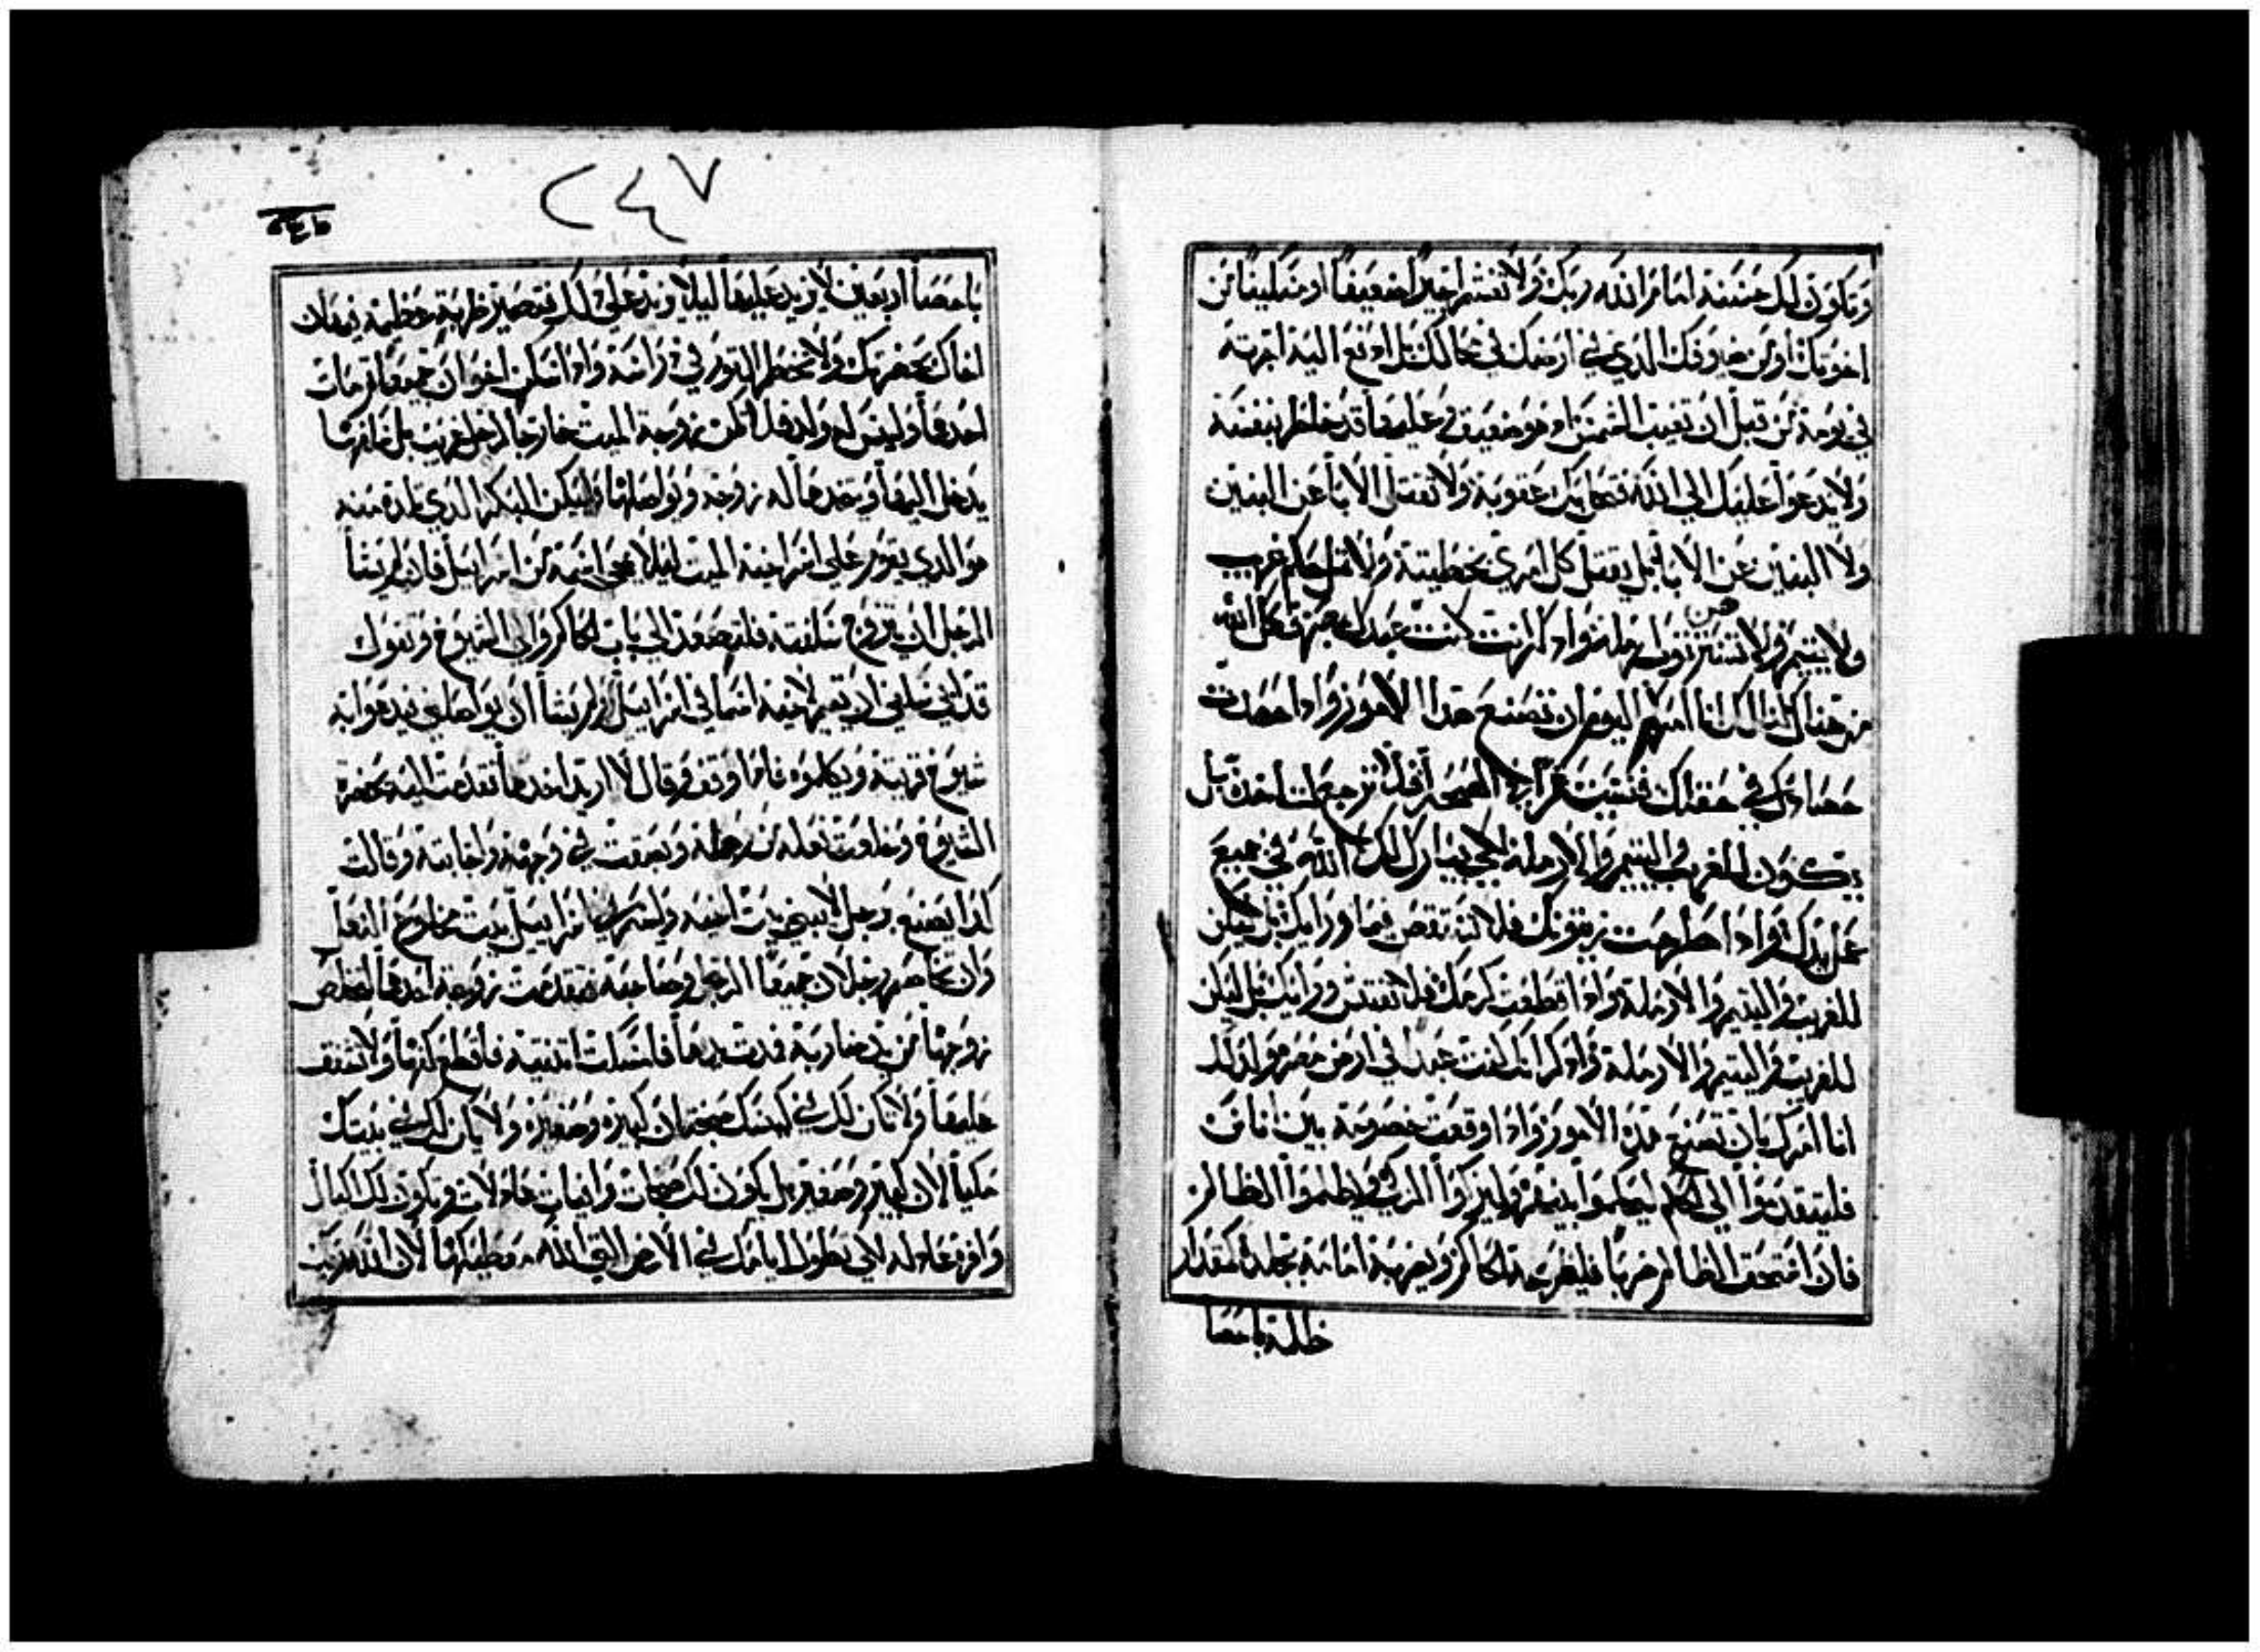 وتكون لك حسنة امام الله ربك ولا تغشم اجيرا ضعيفا او مسكينا من
اخوتك أو من ضيوفك الذي في ارضك في محالك بل ادفع اليه اجرته
في يومه من قبل ان تغيب الشمس او هو ضعيف وعليها قد خاطر بنفسه
ولا يدعوا عليك الي الله فتحل بك عقوبة ولا تقتل الابا عن البنين
ولا البنين عن الابا بل يقتل كل امري بخطيته ولا تمل حكم غريب
ولا يتيم ولا تسترهن ثوب ارمله واذكر انك كنت عبدا بمصر فكك الله
من هناك لذلك انا امرك اليوم ان تصنع هذا الامور واذا حصدت
حصادك في حقلك فنسيت غمرا في الصحرا فلا ترجع لتاخذه بل
يكون للغريب واليتيم والارملة لكي يبارك لك الله في جميع
عمل يدك واذا طرحت زيتونك فلا تتقص فيما ورايك بل يكن
للغريب واليتيم والارملة واذا قطعت كرمك فلا تفتش ورايك بل ليكن
للغريب واليتيم والارملة واذكر انك كنت عبدا في ارض مصر ولذلك
انا امرك بان تصنع هذه الامور واذا وقعت خصومة بين اناس
فليتقدموا الي الحاكم ليحكموا بينهم وليزكوا البري ويظلموا الظالم
فان استحق الظالم ضربا فليضرعه الحاكم ويضربه امامه بجلده كمقدار
ظلمه باحصا
٢٤٧
باحصا اربعين لا يزيد عليها ليلا ويزيد علي ذلك فتصير ضربة عظيمة فيهان
اخاك بحضرتك ولا تخطم الثور في دراسه واذا سكن اخوان جميعا فمات
احدهما وليس له ولد فلا تكن زوجة الميت خارجا لرجل غريب بل اخا زوجها
يدخل اليها ويتخدها له زوجه ويواصلها وليكن البكر الذي تلده منه
هو الذي يقوم علي اسم اخيه الميت ليلا يمحي اسمه من اسراييل فان لم يشا
الرجل ان يتزوج سلفته فلتصعد الي باب الحاكم والي الشيوخ وتقول
قد ابي سلفي ان يقيم لاخيه اسما في اسراييل ولم يشا ان يواصلني فيدعوا به
شيوخ قريته ويكلموه فاذا وقف وقال لا اريد اخدها تقدمت اليه بحضرة
الشيوخ وخلعت نعله من رجله وبصقت في وجهه واجابته وقالت
كدا يصنع برجل لا يبني بيت اخيه وليسمي في اسراييل بيت مخلوع النعل
وان تخاصم رجلان جميعا الرجل وصاحبه فتقدمت زوجة احدهما لتخلص
زوجها من يد ضاربه فمدت يدها فامسكت انثييه فاقطع كفها ولا تشفق
عليها ولا تكن لك في كيسك صنجتان كبيره وصغيره ولا يكن لك في بيتك
مكيالان كبير وصغير بل يكون لك صنجات وافيات عادلات ويكون لك مكيال
وافر عادله لكي تطول ايامك في الارض التي الله معطيكها لان الله ربك